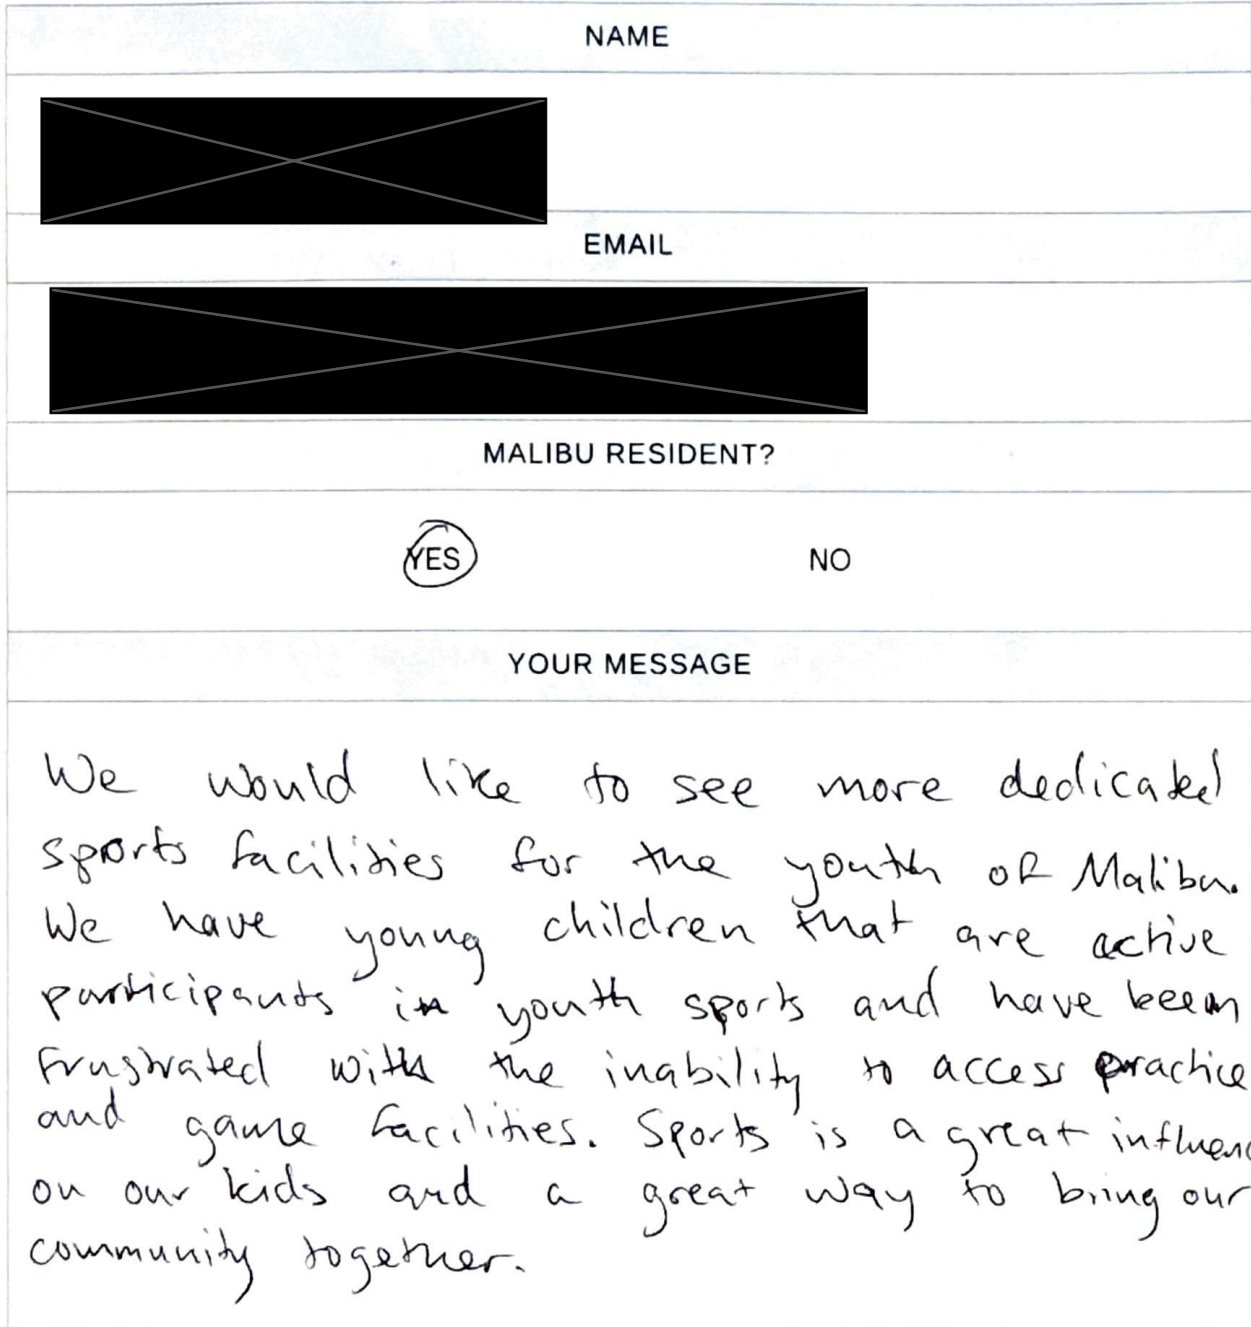 NAME
EMAIL
MALIBU RESIDENT?
YES NO
YOUR MESSAGE
We would like to see more dedicated
sports facilities for the youth of Malibu.
We have young children that are active
participants in youth sports and have been
frustrated with the inability to access practice
and game facilities. Sports is a great influenc
on our kids and a great way to bring our
community together.